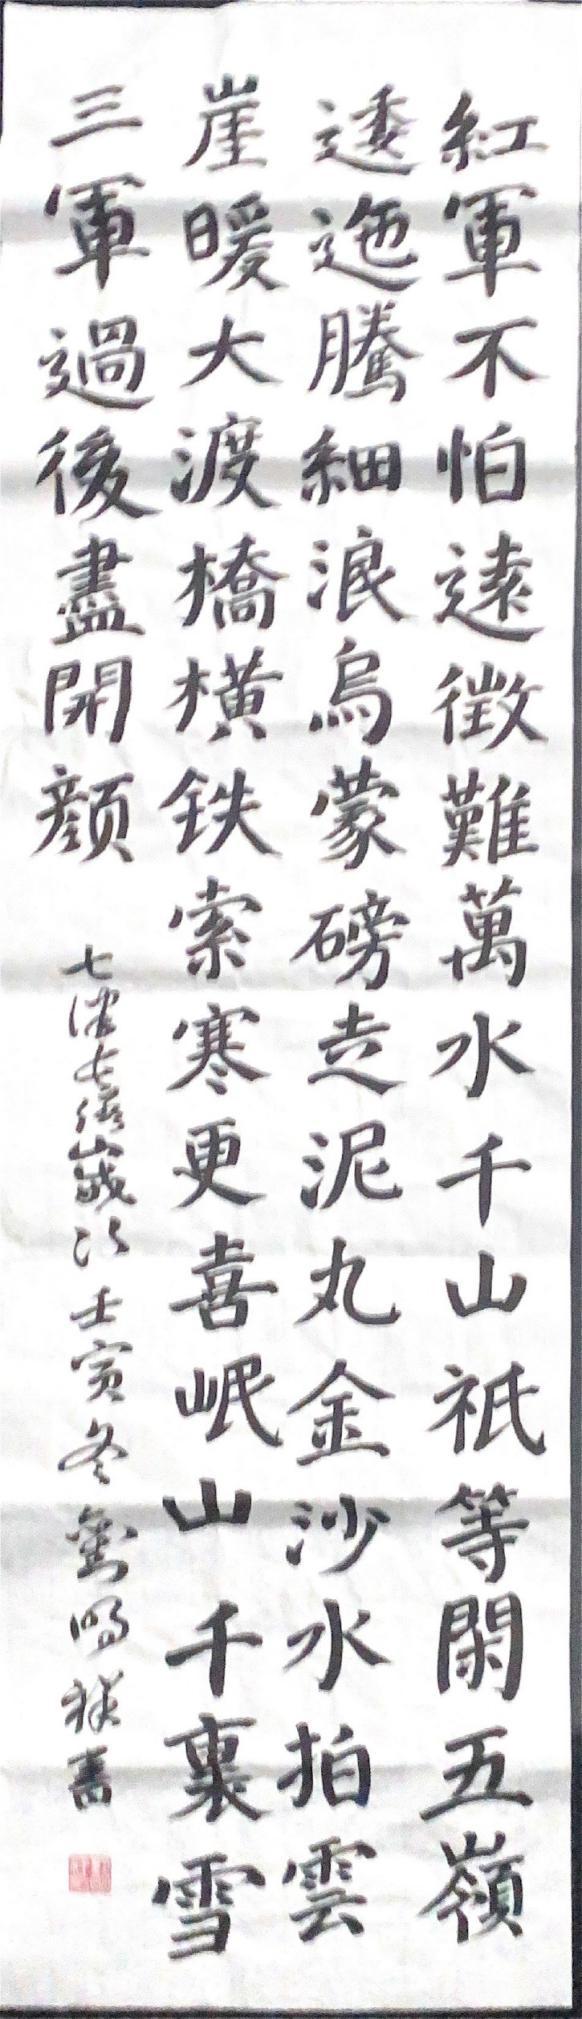 紅軍不怕遠徵難萬水千山祇等閑五嶺
逶迤騰細浪烏蒙磅走泥丸金沙水拍雲
崖暖大渡橋橫鉄索寒更喜岷山千裏雪
三軍過後盡開顏
七律長征歲次壬寅冬劉鳴祥書